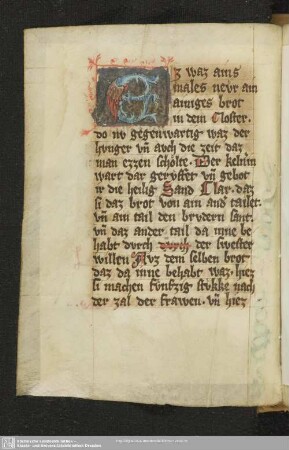 Ez waz ains
males nevr ain
ainiges brot
in dem Closter.
do nv gegenwartig waz der
hvnger vn̄ avch die zeit daz
man ezzen scholte. Der kelnn̄
wart dar gervffet vn̄ gebot
ir die heilig Sand Clar. daz
si daz brot von ain and tailet.
vn̄ ain tail den brvdern sant.
vn̄ daz ander tail da inne be
habt dvrch dvrch der swester
willen Avz dem selben brot
daz da inne behabt waz. hiez
si machen fvnfzig stvkke nach
der zal der frawen. vn̄ hiez